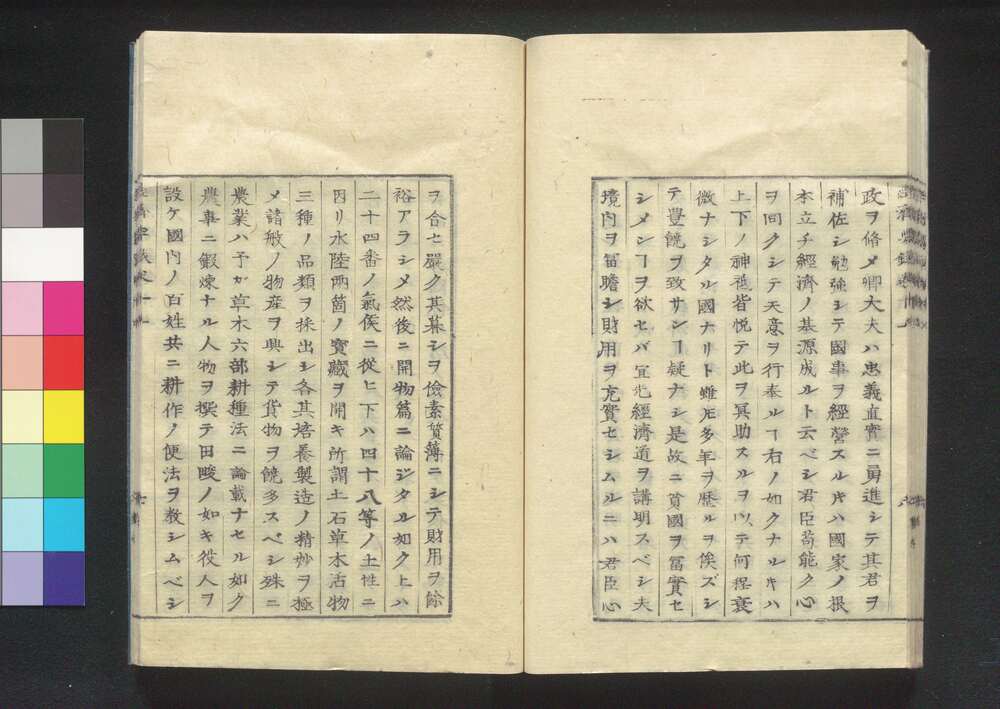 政ヲ脩メ卿大夫ハ忠義直實ニ勇進シテ其君ヲ
補佐シ勉強シテ國事ヲ經營スル片ハ國家ノ根
本立チ經濟ノ基源成ルト云ベシ君臣苟能ク心
ヲ同クシテ天意ヲ行奉ルヿ右ノ如クナル片ハ
上下ノ神祗皆悦テ此ヲ冥助スルヲ以テ何程衰
微ナシタル國ナリト雖𪜈多年ヲ歴ルヲ俟ズシ
テ豊饒ヲ致サンヿ疑ナシ是故ニ貧國ヲ冨實セ
シメンヿヲ欲セバ宜先經濟道ヲ講明スベシ夫
境内ヲ冨贍シ財用ヲ充實セシムルニハ君臣心
ヲ合セ嚴ク其暮シヲ儉素質簿ニシテ財用ヲ餘
裕アラシメ然後ニ開物篇ニ論ジタル如ク上ハ
二十四番ノ氣侯ニ從ヒ下ハ四十八等ノ土性ニ
因リ水陸兩箇ノ寶藏ヲ開キ所謂土石草木活物
三種ノ品類ヲ採出シ各其培養製造ノ精妙ヲ極
メ諸般ノ物産ヲ興シテ貨物ヲ饒多スベシ殊ニ
農業ハ予ガ草木六部耕種法ニ論載ナセル如ク
農事ニ鍜煉ナル人物ヲ撰テ田畯ノ如キ役人ヲ
設ケ國内ノ百姓共ニ耕作ノ便法ヲ教シムベシ